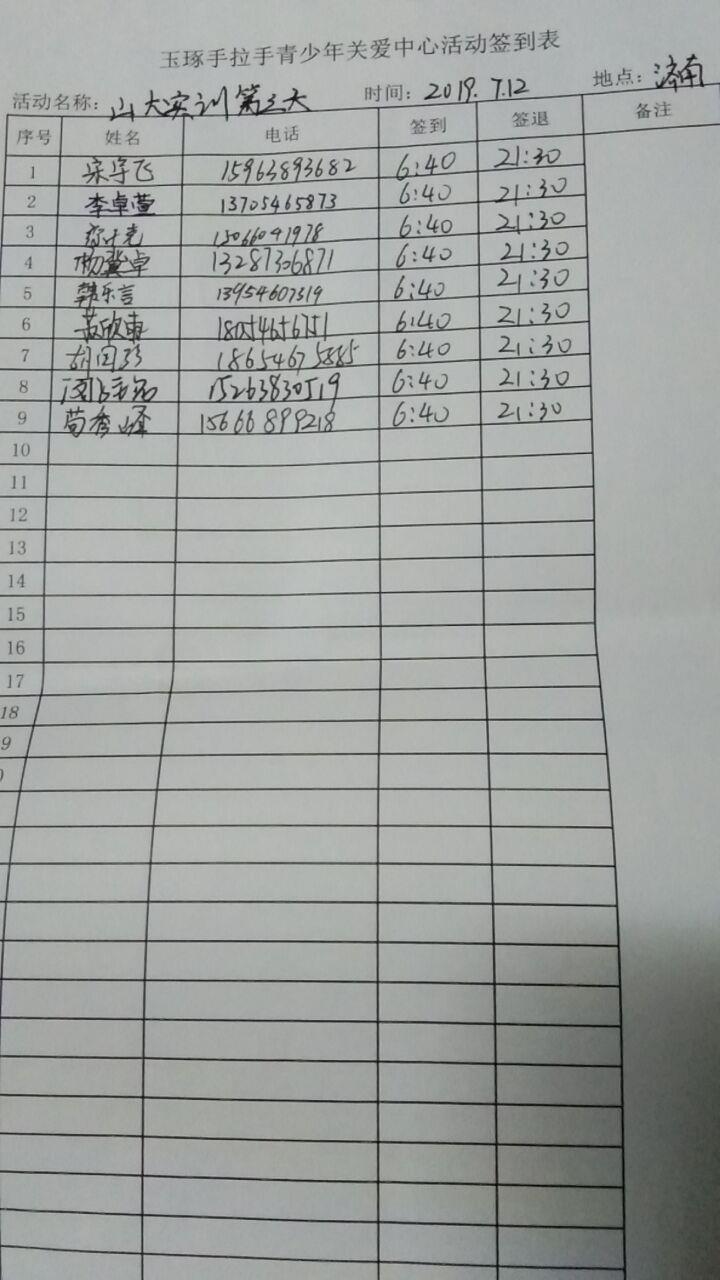 玉琢手拉手青少年关爱中心活动签到表
活动名称：山大实训第三天 时间：2019.7.12 地点：济南
序号 姓名 电话 签到 签退 备注
1 宋宇飞 15963893682 6:40 21:30
2 李卓萱 13705465873 6:40 21:30
3 15066041978 6:40 21:30
4 杨冀卓 13287306871 6:40 21:30
5 韩乐言 13954607319 6:40 21:30
6 苏欣雨 18054656751 6:40 21:30
7 胡国珍 18654675885 6:40 21:30
8 15263830519 6:40 21:30
9 苟秀峰 15666899218 6:40 21:30
10
11
12
13
14
15
16
17
18
9